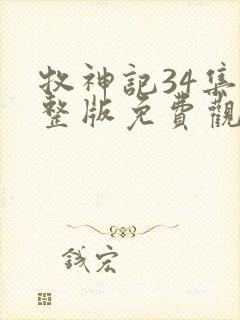 牧神記34集
整版免費觀
錢宏